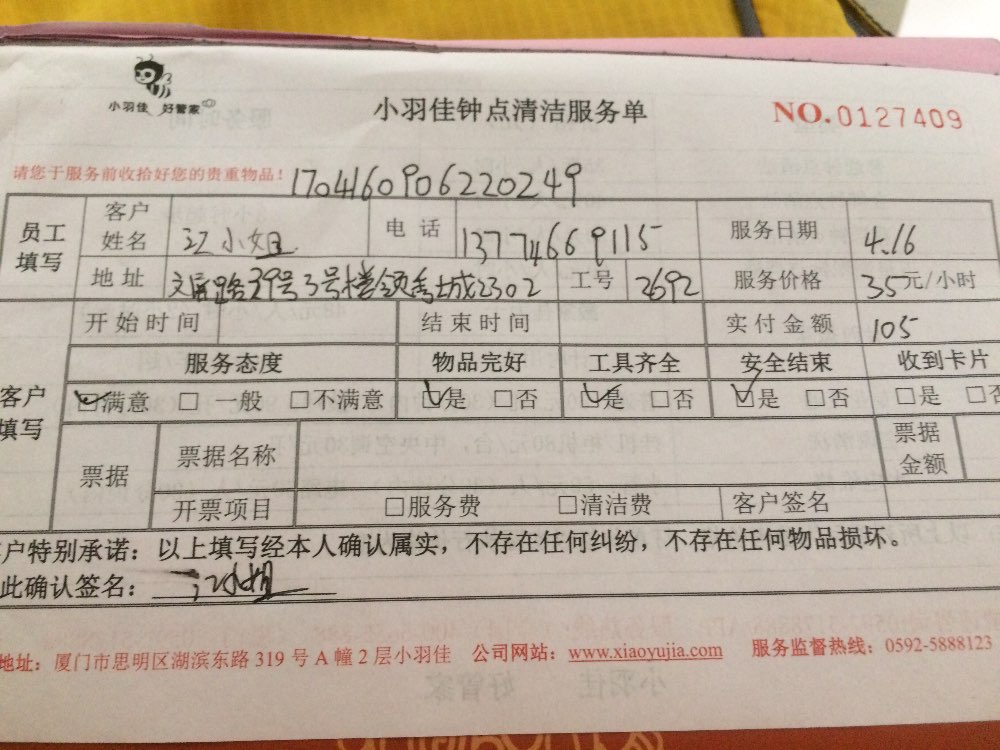 小羽佳 好管家
小羽佳钟点清洁服务单
NO.0127409
请您于服务前收拾好您的贵重物品!
1704160906220249
员工填写 客户姓名 江小姐 电话 13774669115 服务日期 4.16
地址 文屏路39号3号楼领秀城2302 工号 2692 服务价格 35元/小时
开始时间 结束时间 实付金额 105
客户填写 服务态度 物品完好 工具齐全 安全结束 收到卡片
☑满意 □一般 □不满意 ☑是 □否 ☑是 □否 ☑是 □否 □是 □否
票据 票据名称 票据金额
开票项目 □服务费 □清洁费 客户签名
户特别承诺：以上填写经本人确认属实，不存在任何纠纷，不存在任何物品损坏。
此确认签名： 江小姐
地址：厦门市思明区湖滨东路 319 号 A 幢 2 层小羽佳 公司网站：www.xiaoyujia.com 服务监督热线：0592-5888123